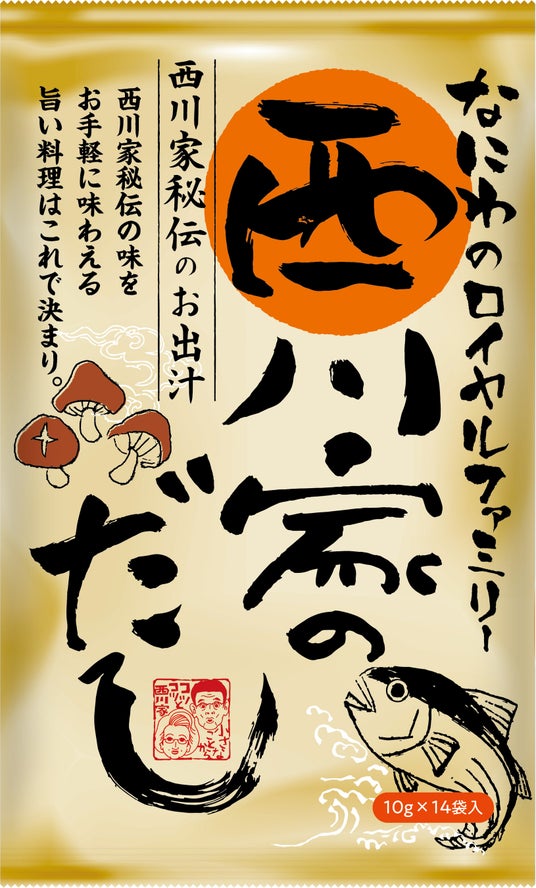 なにわのロイヤルファミリー
西川家の
だし
西川家秘伝のお出汁
西川家秘伝の味を
お手軽に味わえる
旨い料理はこれで決まり。
西川家
10g×14袋入